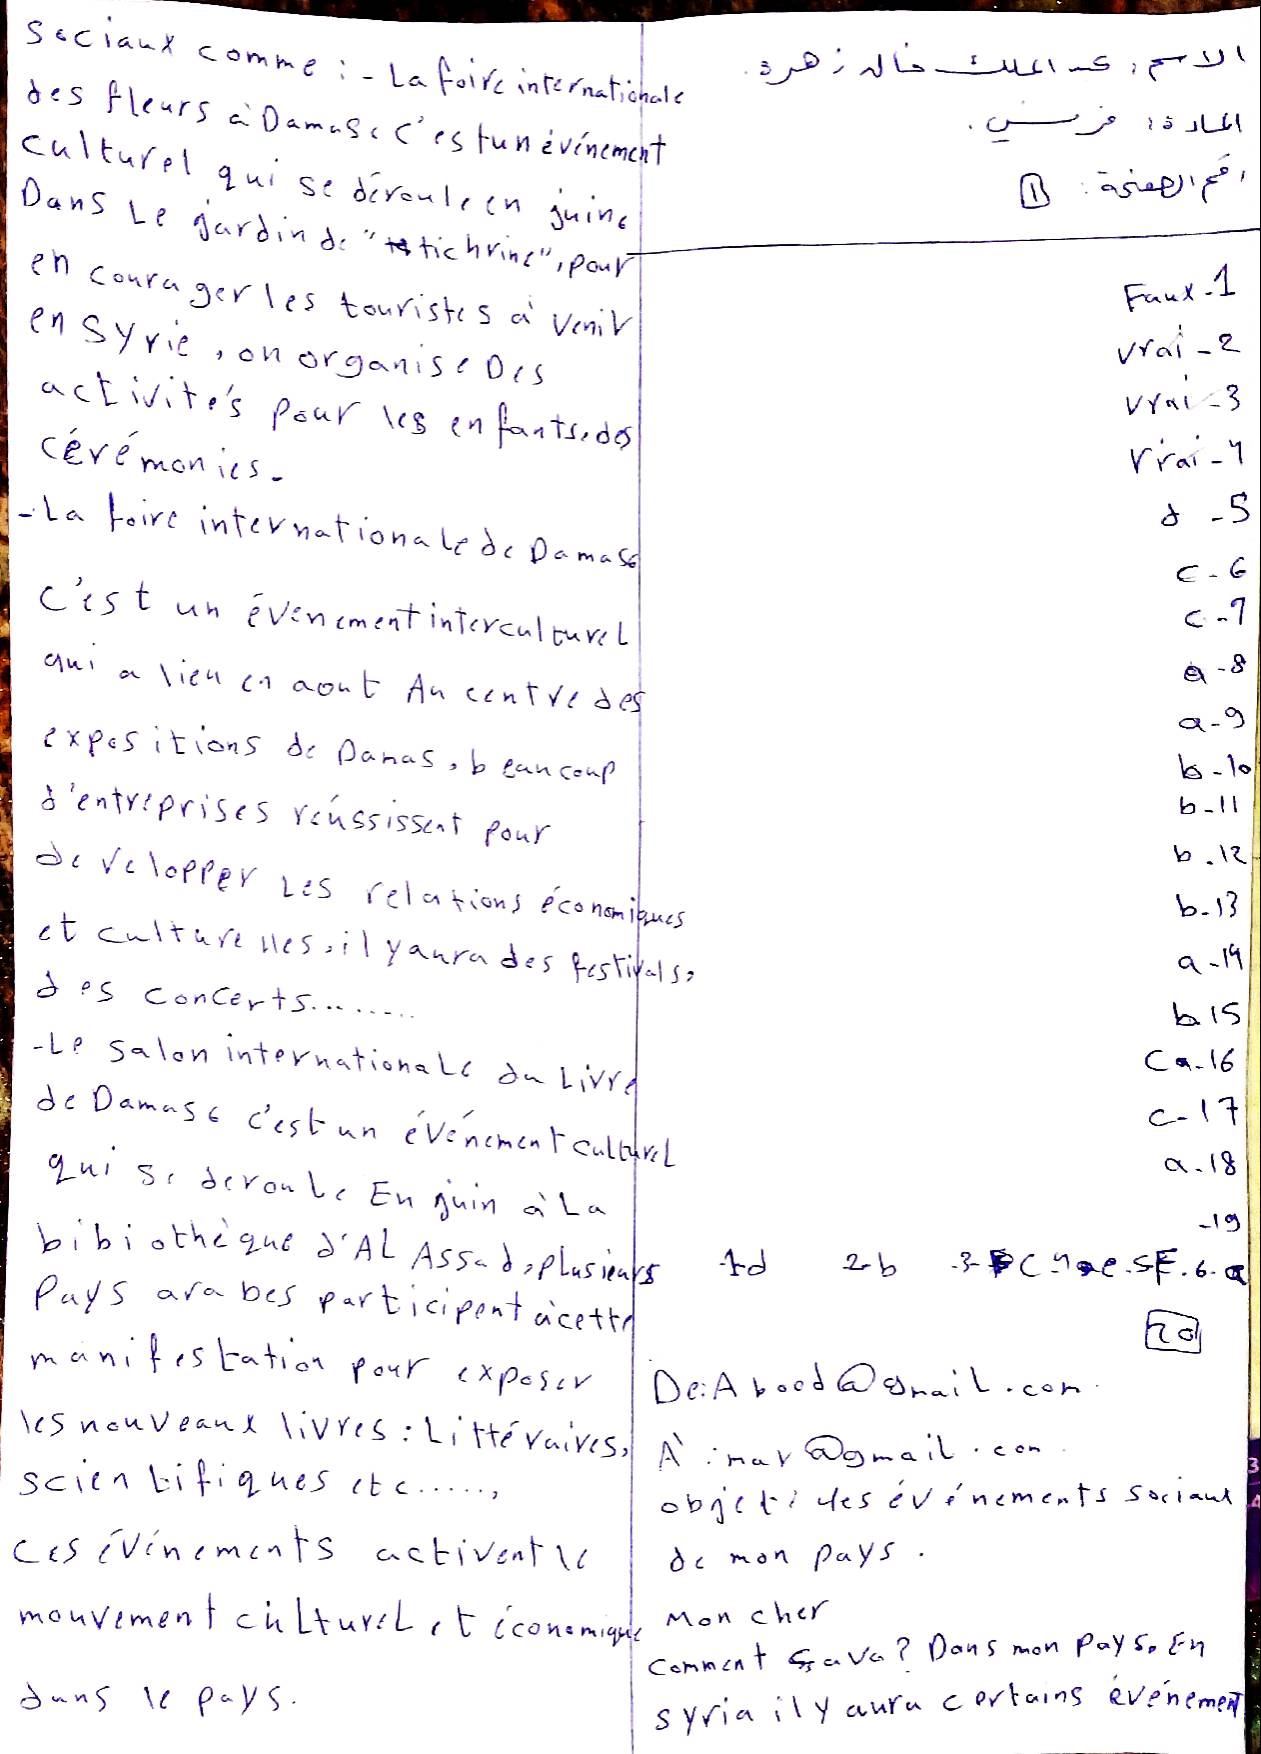 الاسم: عبد الملك خالد زهرة.
المادة: فرنسي.
رقم الصفحة: 1
Faux-1
vrai-2
vrai-3
vrai-4
d-5
c-6
c-7
a-8
a-9
b-10
b-11
b-12
b-13
a-14
b15
Ca-16
c-17
a-18
-19
-1d 2-b -3-C-4e.5F.6.a
20
De:Abood@gmail.com.
À:mar@gmail.com.
objet: les événements sociaux
de mon pays.
Mon cher
Comment ça va? Dans mon pays. En
syria il y aura certains évenement
Sociaux comme:-La foire internationale
des fleurs à Damasc C'est un évínement
culturel qui se déroule en juine
Dans Le jardin de "tichrine", pour
en courager les touristes à venir
en Syrie, on organise Des
activités pour les enfants, des
cérémonies-
-La foire internationale de Damasc
C'est un évenement interculturel
qui a lieu en aout Au centre des
expositions de Damas, beaucoup
d'entreprises réussissent pour
developper Les relations économiques
et culturelles, il y aura des festivals,
des concerts.........
-Le salon internationale du Livre
de Damasc c'est un événement culturel
qui se deroule En juin à La
bibiothèque d'AL Assad, plusieurs
Pays arabes participent à cette
manifestation pour exposer
les nouveaux livres: Littéraires,
scientifiques etc.....,
ces évínements activent le
mouvement culturel et économique
dans le pays.